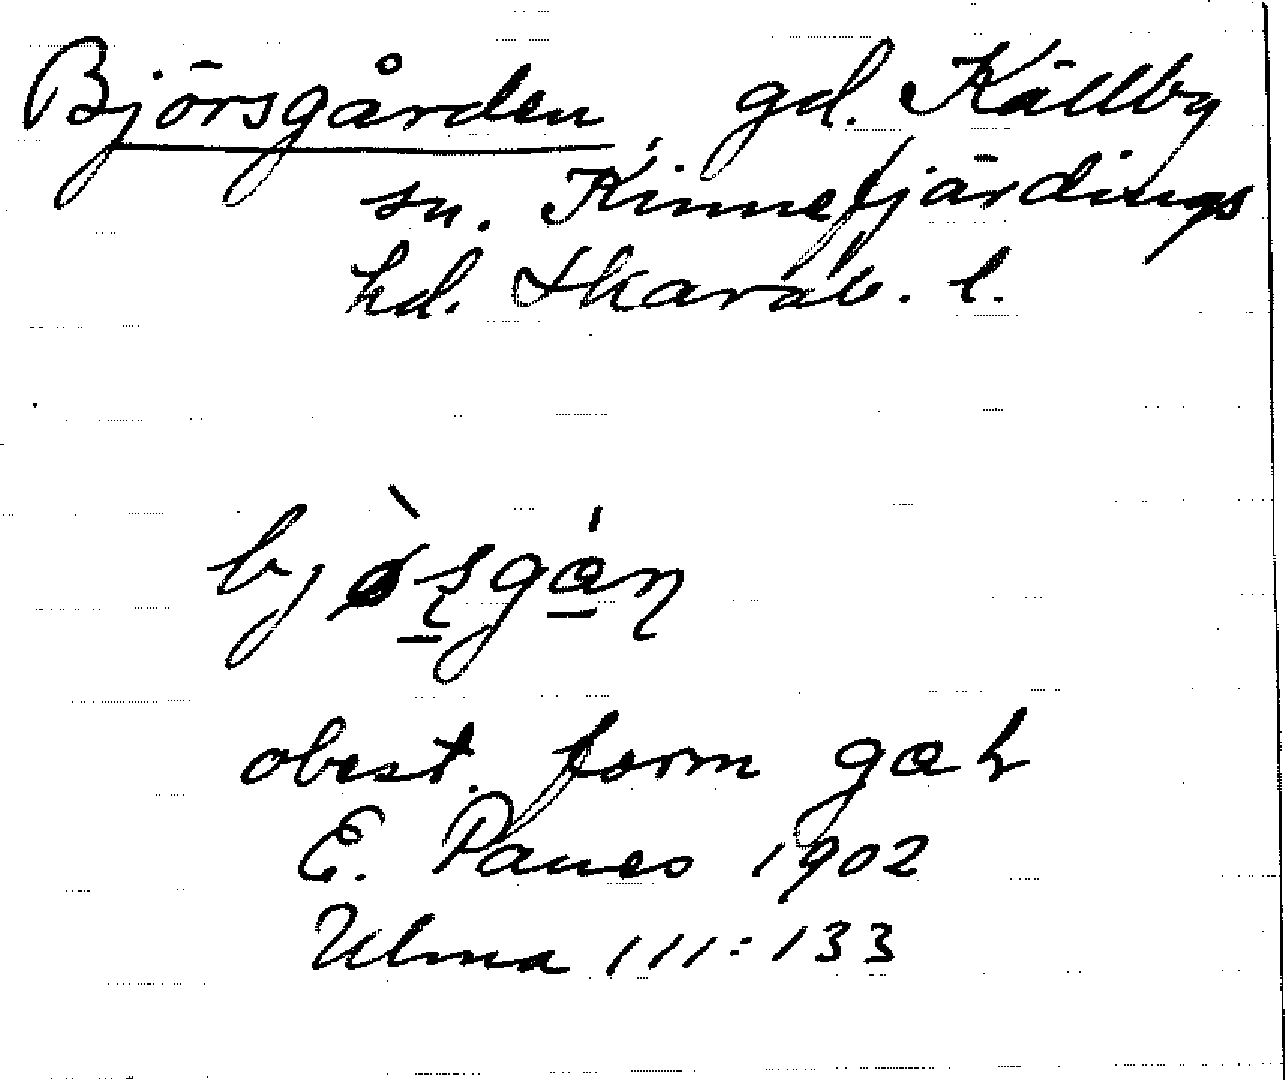 Björsgården, gd. Källby
sn. Kinnefjärdings
hd. Skarab. l.
obest. form
E. Panes 1902
Ulma 111:133